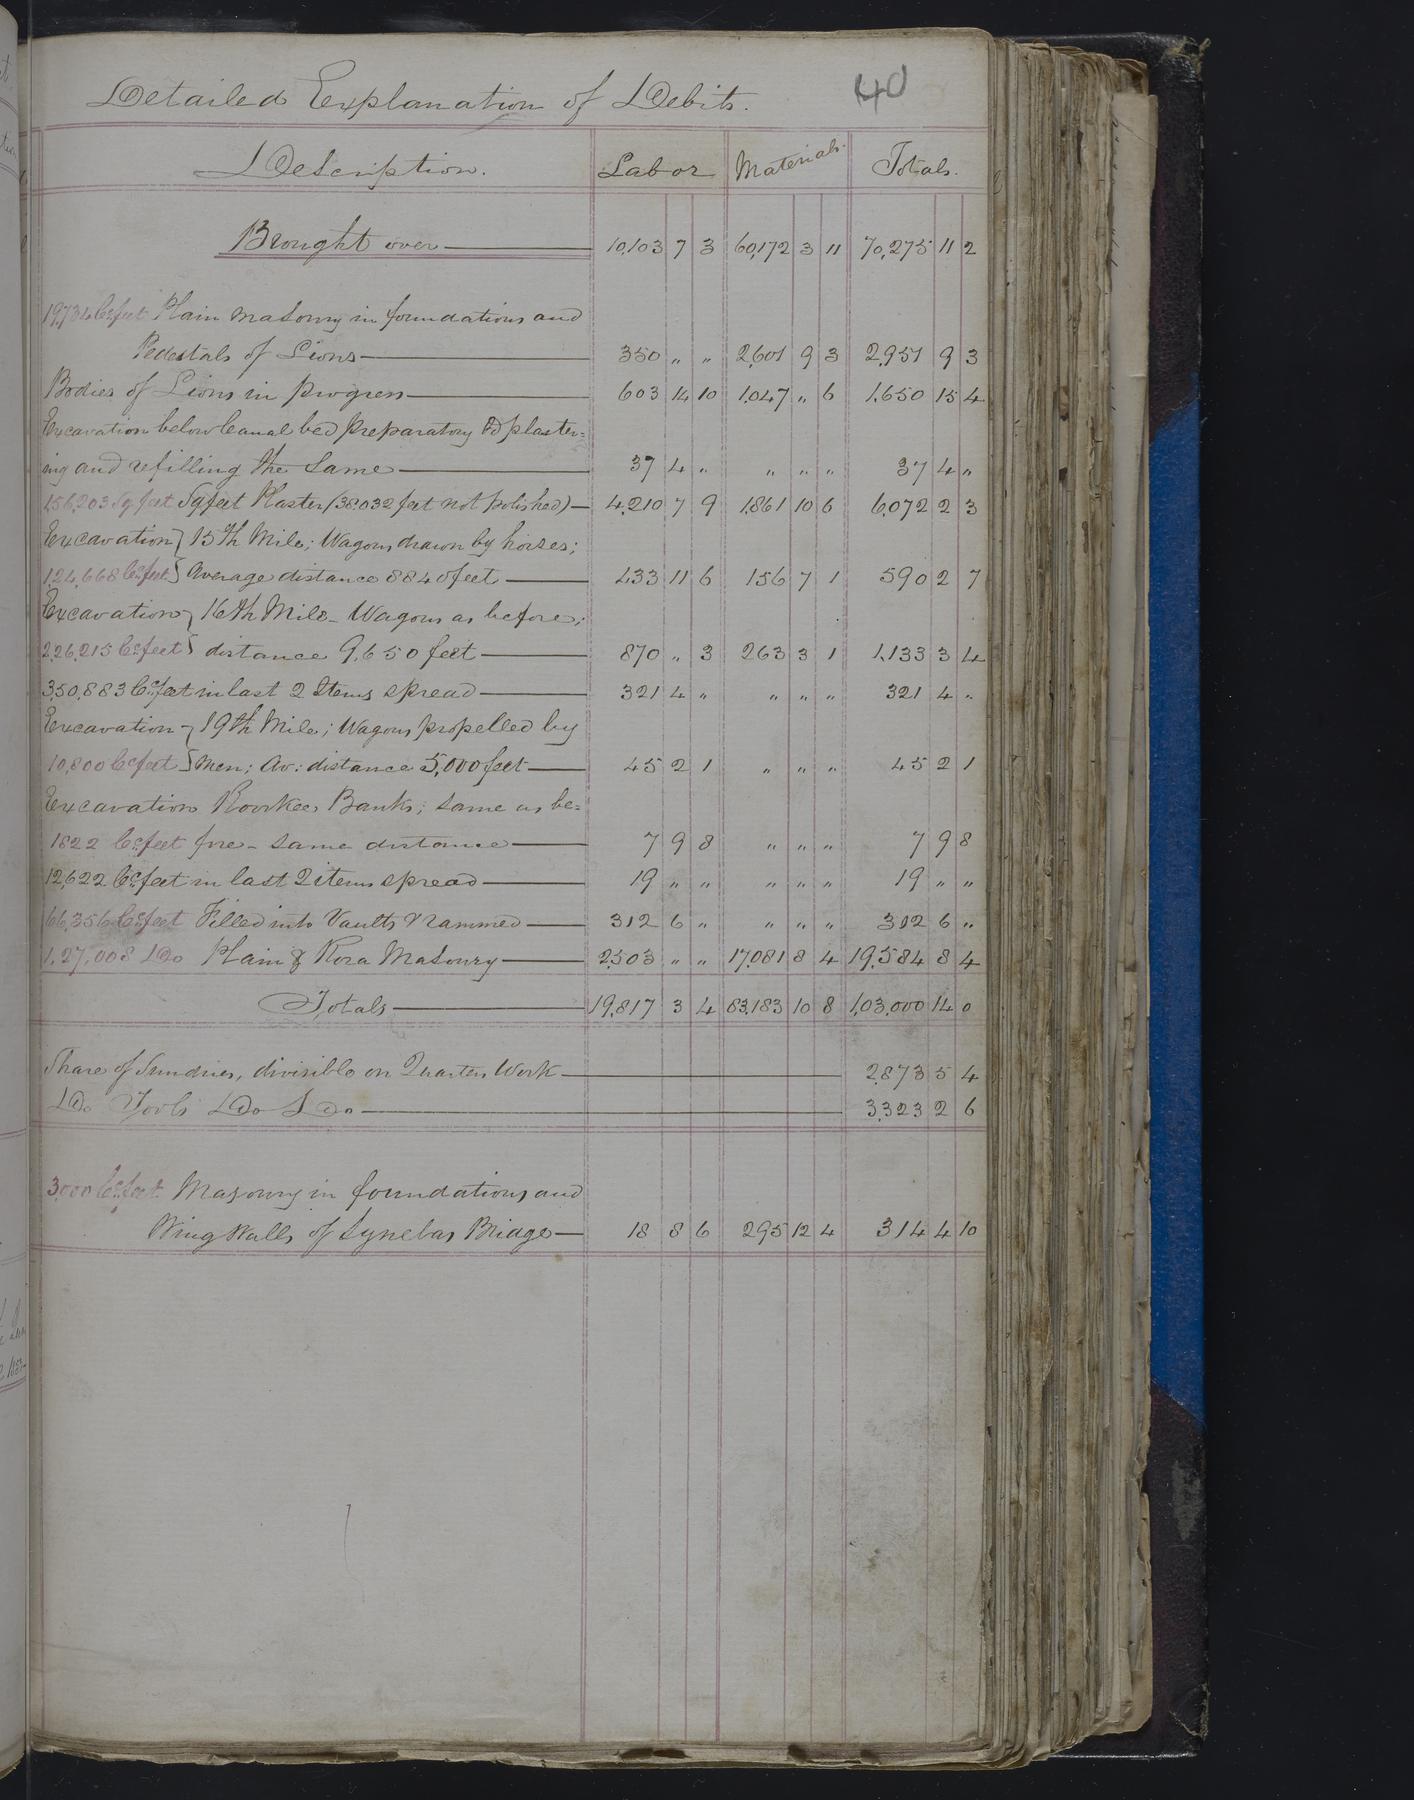 40
Detailed Explanation of Debits.
Description. Labor Materials. Totals.
Brought over 10,103 7 3 60,172 3 11 70,275 11 2
19,734 Cc. feet Plain Masonry in foundations and
Pedestals of Lions 350 " " 2,601 9 3 2,951 9 3
Bodies of Lions in progress 603 14 10 1,047 " 6 1,650 15 4
Excavation below Canal bed preparatory to plaster=
ing and refilling the same 37 4 " " " " 37 4 "
1,56,203 Sq feet Sqfeet Plaster (38,032 feet not polished) 4,210 7 9 1,861 10 6 6,072 2 3
Excavation } 15th Mile; Wagons drawn by horses;
1,24,668 Cc. feet } Average distance 8840 feet 433 11 6 156 7 1 590 2 7
Excavation } 16th Mile - Wagons as before;
2,26,215 Cc. feet } distance 9,650 feet 870 " 3 263 3 1 1,133 3 4
3,50,883 Cc. feet in last 2 Items spread 321 4 " " " " 321 4 "
Excavation } 19th Mile; Wagons propelled by
10,800 Cc. feet } Men; Av: distance 5,000 feet 45 2 1 " " " 45 2 1
Excavation Roorkee Banks; same as be=
1822 Cc. feet fore - same distance 7 9 8 " " " 7 9 8
12,622 Cc. feet in last 2 items spread 19 " " " " " 19 " "
66,356 Cc. feet Filled into Vaults & rammed 312 6 " " " " 312 6 "
1,27,008 Do Plain & Kora Masonry 2,503 " " 17,081 8 4 19,584 8 4
Totals 19,817 3 4 83,183 10 8 1,03,000 14 0
Share of Sundries, divisible on Quarters Work 2,873 5 4
Do Tools Do Do 3,323 2 6
3,000 Cc. feet Masonry in foundations and
Wing Walls of Bridge 18 8 6 295 12 4 314 4 10